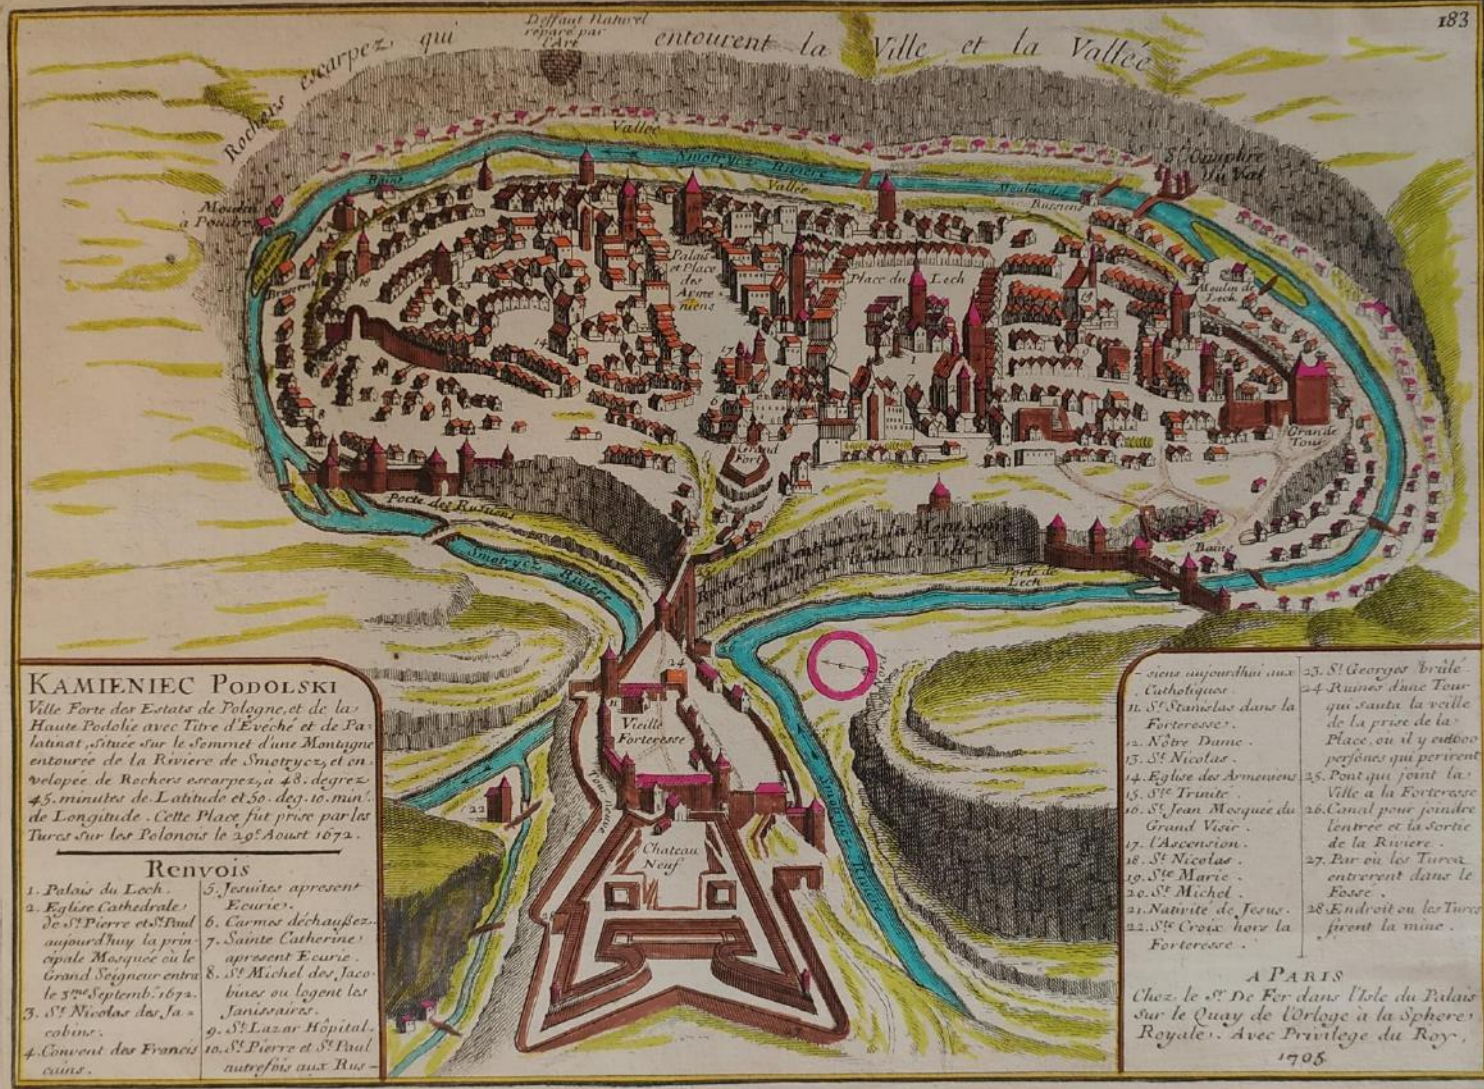 183
Rochers escarpez qui entourent la Ville et la Vallée
Deffaut Naturel
reparé par
l'Art
Vallée
Smotrycz Riviere
Vallée
Bains
Moulin
à Poudre
Moulin des
Russiens
St. Onuphre
du Val
Palais
et Place
des
Arme-
niens
Place du Lech
Moulin de
Lech
Grand
Fort
Grande
Tour
Porte des Russiens
Smotrycz Riviere
Rochers qui entourent la Montagne
sur laquelle est située la Ville
Porte de
Lech
Bains
24
Vieille
Forteresse
22
Chateau
Neuf
Smotrycz Riviere
KAMIENIEC PODOLSKI
Ville Forte des Estats de Pologne, et de la
Haute Podolie avec Titre d'Evéché et de Pa-
latinat, Située sur le Sommet d'une Montagne
entourée de la Riviere de Smotrycz, et en-
velopée de Rochers escarpez, a 48. degrez
45. minutes de Latitude et 50. deg. 10. min.
de Longitude. Cette Place fut prise par les
Turcs sur les Polonois le 29e. Aoust 1672.
Renvois
1. Palais du Lech.
2. Eglise Cathedrale
de St. Pierre et St. Paul
aujourd'huy la prin-
cipale Mosquée ou le
Grand Seigneur entra
le 3me. Septemb. 1672.
3. St. Nicolas des Ja-
cobins.
4. Convent des Francis
cains.
5. Jesuites apresent
Ecurie.
6. Carmes déchaußez.
7. Sainte Catherine
apresent Ecurie.
8. St. Michel des Jaco-
bines ou logent les
Janissaires.
9. St. Lazar Hôpital.
10. St. Pierre et St. Paul
autrefois aux Rus-
-siens aujourdhui aux
Catholiques.
11. St. Stanislas dans la
Forteresse.
12. Nôtre Dame.
13. St. Nicolas.
14. Eglise des Armeniens
15. Ste. Trinité.
16. St. Jean Mosquée du
Grand Visir.
17. l'Ascension.
18. St. Nicolas.
19. Ste. Marie.
20. St. Michel.
21. Nativité de Jesus.
22. Ste. Croix hors la
Forteresse.
23. St. Georges brûlé.
24 Ruines d'une Tour
qui sauta la veille
de la prise de la
Place, ou il y eut 800
persones qui perirent
25. Pont qui joint la
Ville a la Forteresse
26. Canal pour joindre
l'entrée et la Sortie
de la Riviere.
27. Par ou les Turcs
entrerent dans le
Fossé.
28. Endroit ou les Turcs
firent la mine.
A PARIS
Chez le Sr. De Fer dans l'Isle du Palais
Sur le Quay de l'Orloge a la Sphere
Royale. Avec Privilege du Roy,
1705